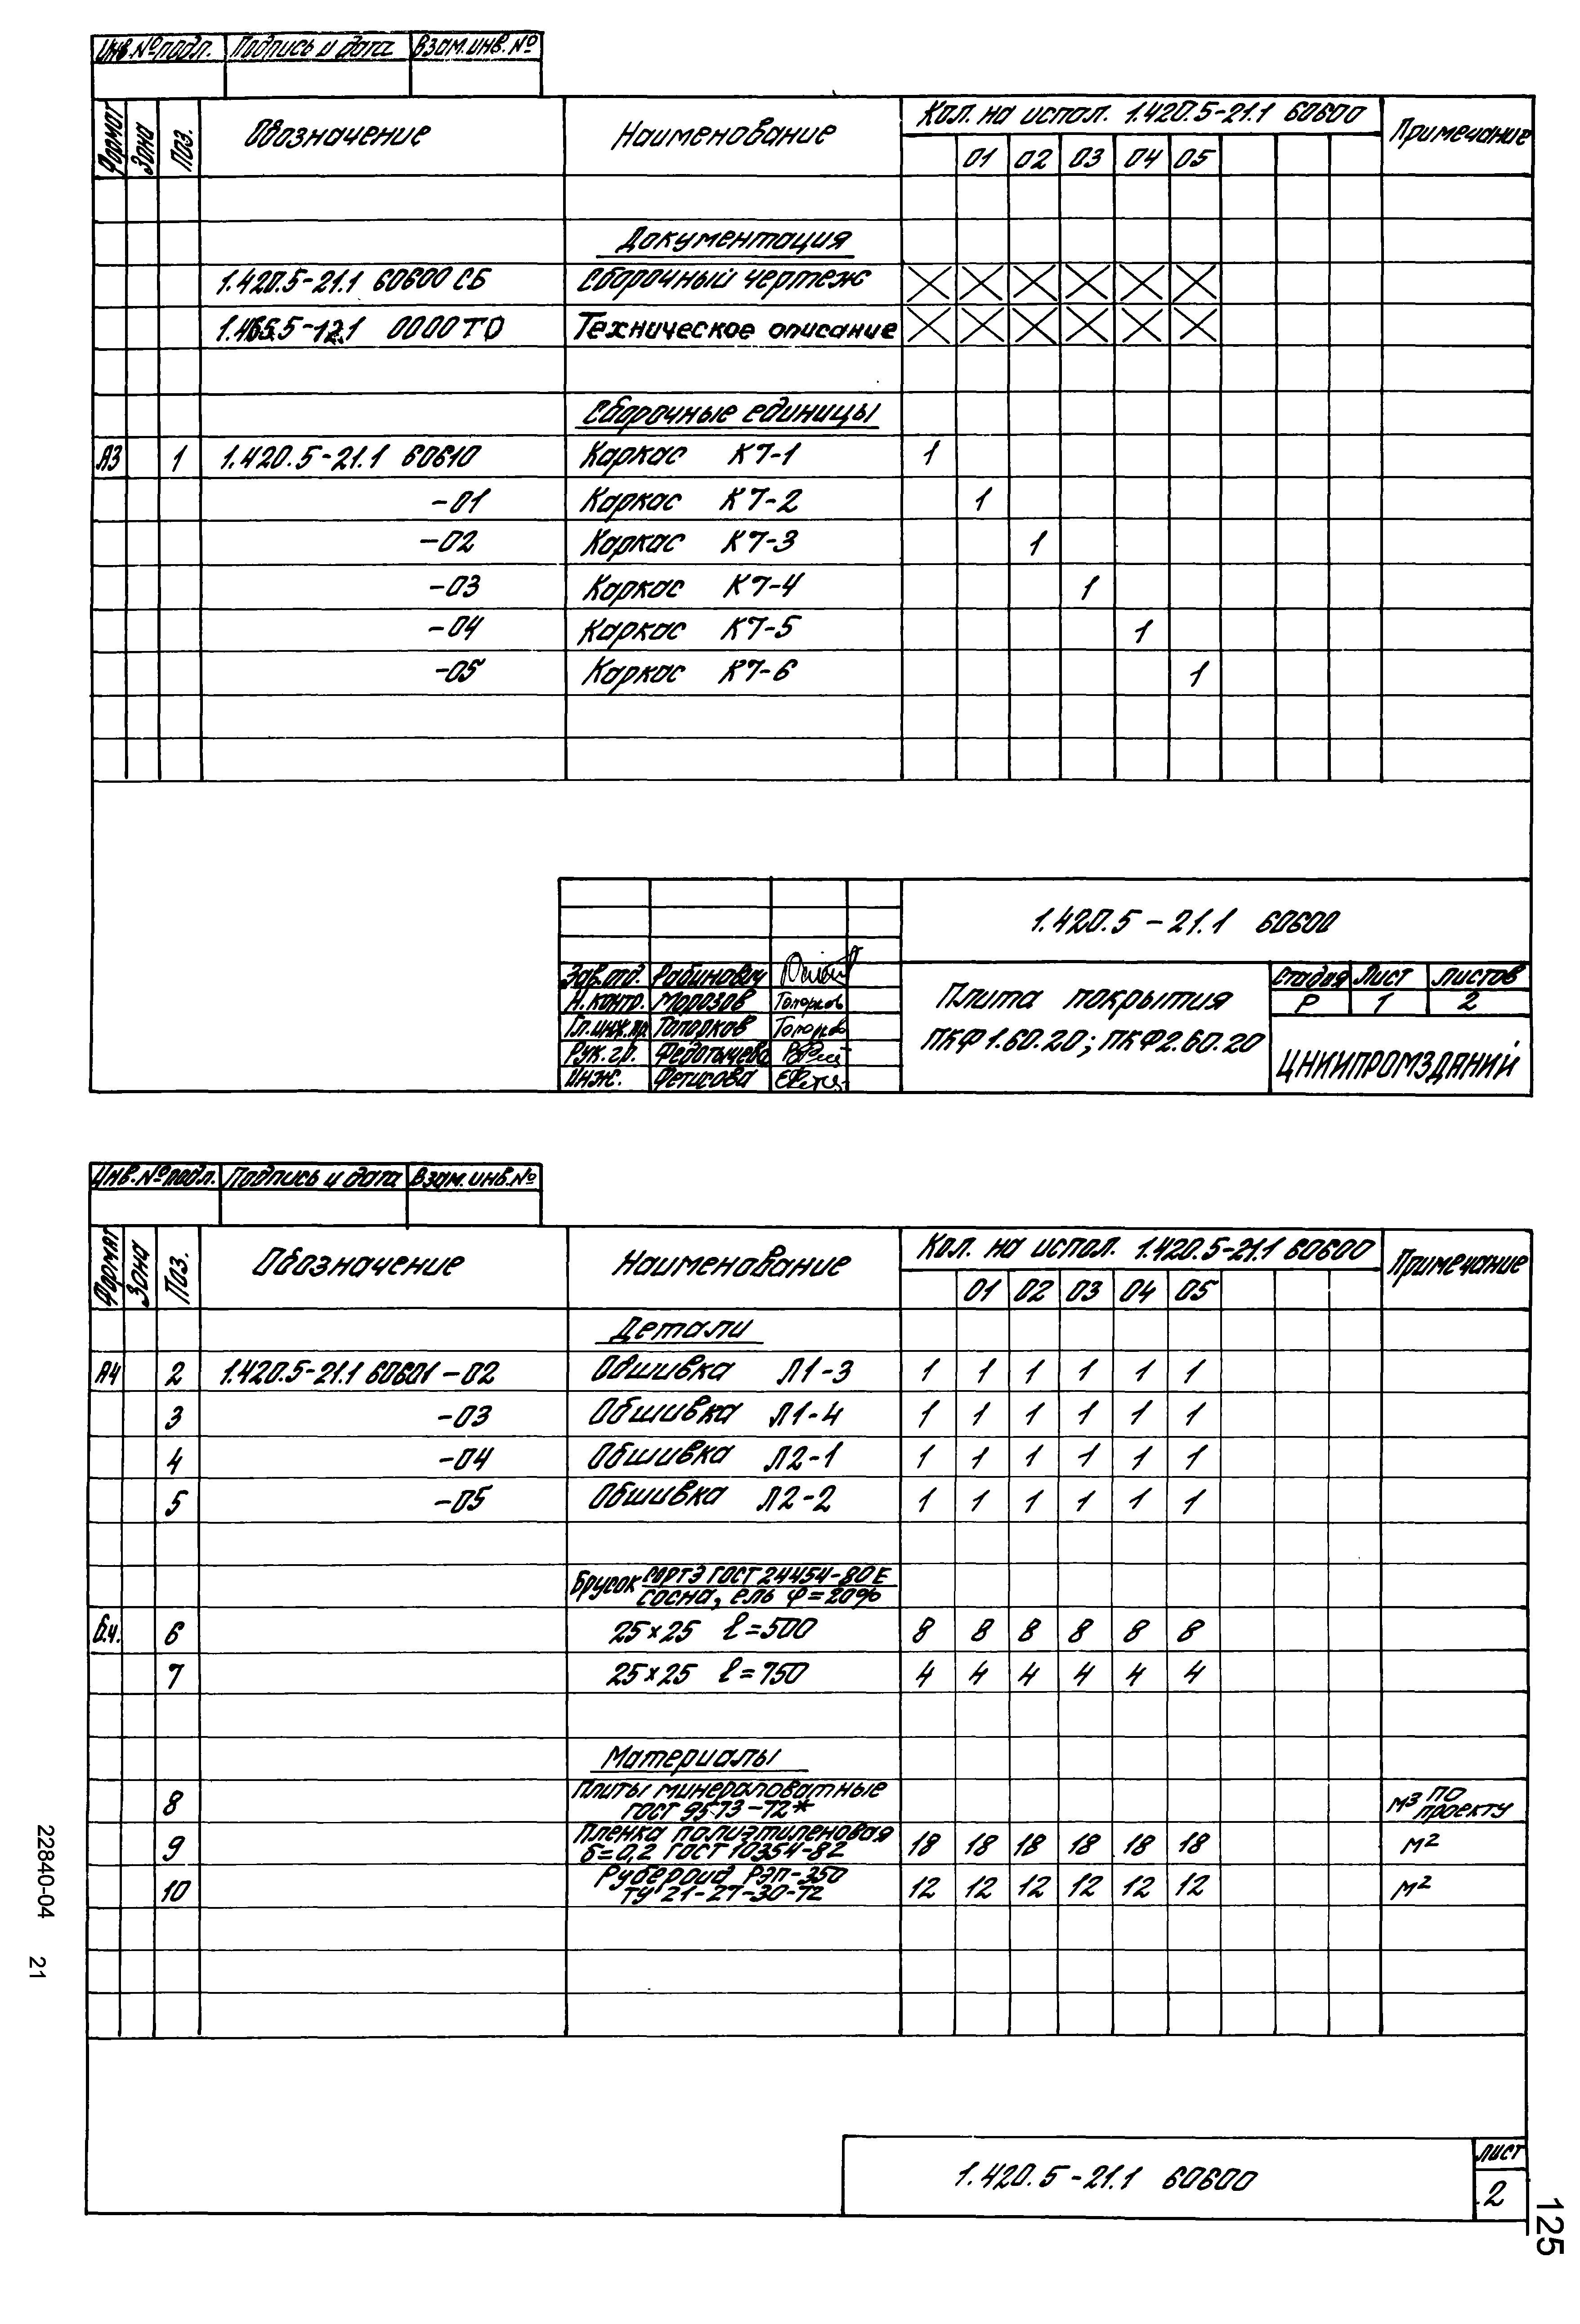 Инв.№подл. Подпись и дата Взам.инв.№
Формат Зона Поз. Обозначение Наименование Кол. на испол. 1.420.5-21.1 60600 Примечание
01 02 03 04 05
Документация
1.420.5-21.1 60600 СБ Сборочный чертеж
1.465.5-12.1 0000 ТО Техническое описание
Сборочные единицы
А3 1 1.420.5-21.1 60610 Каркас К7-1 1
-01 Каркас К7-2 1
-02 Каркас К7-3 1
-03 Каркас К7-4 1
-04 Каркас К7-5 1
-05 Каркас К7-6 1
1.420.5-21.1 60600
Зав.отд. Рабинович
Н.контр. Морозов Топорков
Гл.инж.пр. Топорков Топорков
Рук.гр. Федотычева
Инж. Фетисова
Плита покрытия
ПКФ1.60.20; ПКФ2.60.20
Стадия Лист Листов
Р 1 2
ЦНИИПРОМЗДАНИЙ
Инв.№подл. Подпись и дата Взам.инв.№
Формат Зона Поз. Обозначение Наименование Кол. на испол. 1.420.5-21.1 60600 Примечание
01 02 03 04 05
Детали
А4 2 1.420.5-21.1 60601-02 Обшивка Л1-3 1 1 1 1 1 1
3 -03 Обшивка Л1-4 1 1 1 1 1 1
4 -04 Обшивка Л2-1 1 1 1 1 1 1
5 -05 Обшивка Л2-2 1 1 1 1 1 1
Брусок сорт3 ГОСТ 24454-80Е
сосна, ель φ=20%
Б.ч. 6 25×25 ℓ=500 8 8 8 8 8 8
7 25×25 ℓ=750 4 4 4 4 4 4
Материалы
8 Плиты минераловатные
ГОСТ 9573-72* м3 по проекту
9 Пленка полиэтиленовая
δ=0,2 ГОСТ 10354-82 18 18 18 18 18 18 м2
10 Рубероид РЭП-350
ТУ 21-27-30-72 12 12 12 12 12 12 м2
1.420.5-21.1 60600
Лист
2
22840-04 21
125